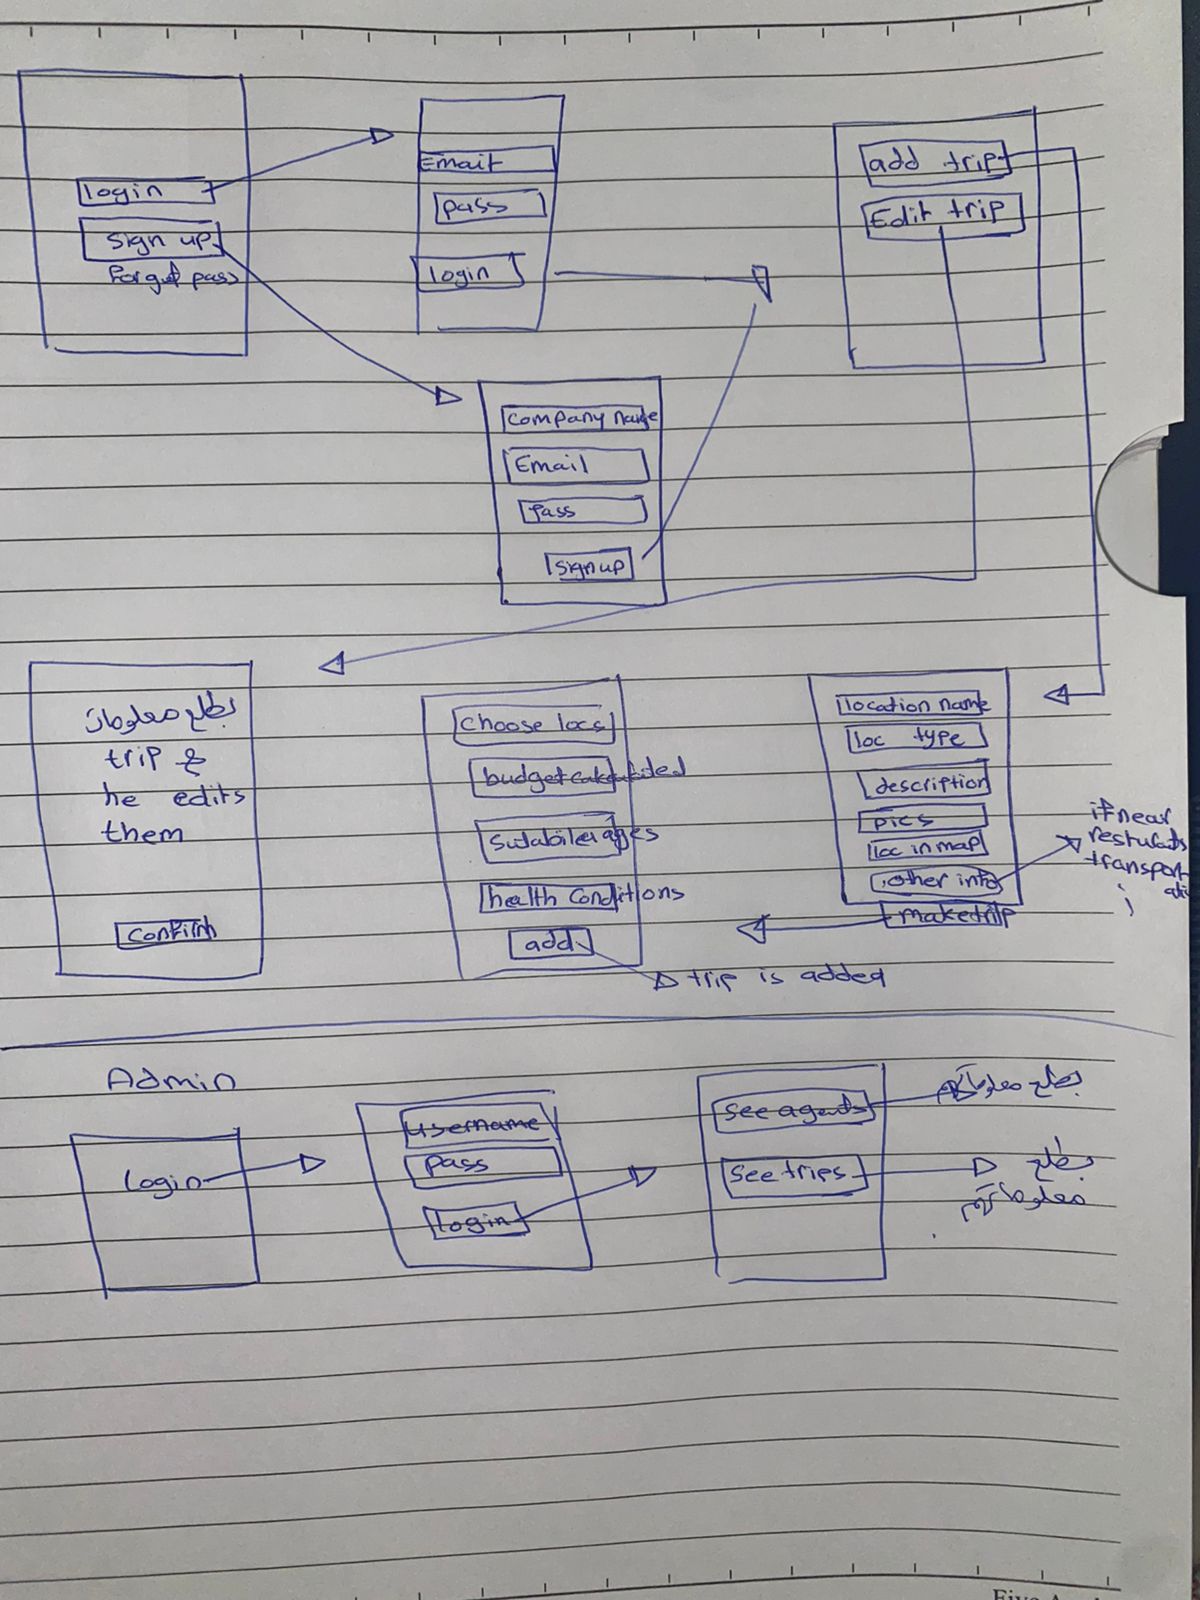 login
sign up
forget pass
Email
pass
login
add trip
Edit trip
Company name
Email
Pass
Sign up
بطلع معلومات
trip &
he edits
them
confirm
choose locs
budget calculated
health conditions
add
trip is added
location name
loc type
description
pics
loc in map
other info
make trip
if near
transport
Admin
login
username
pass
login
see agents
بطلع معلوماتهم
see trips
بطلع
معلوماتهم